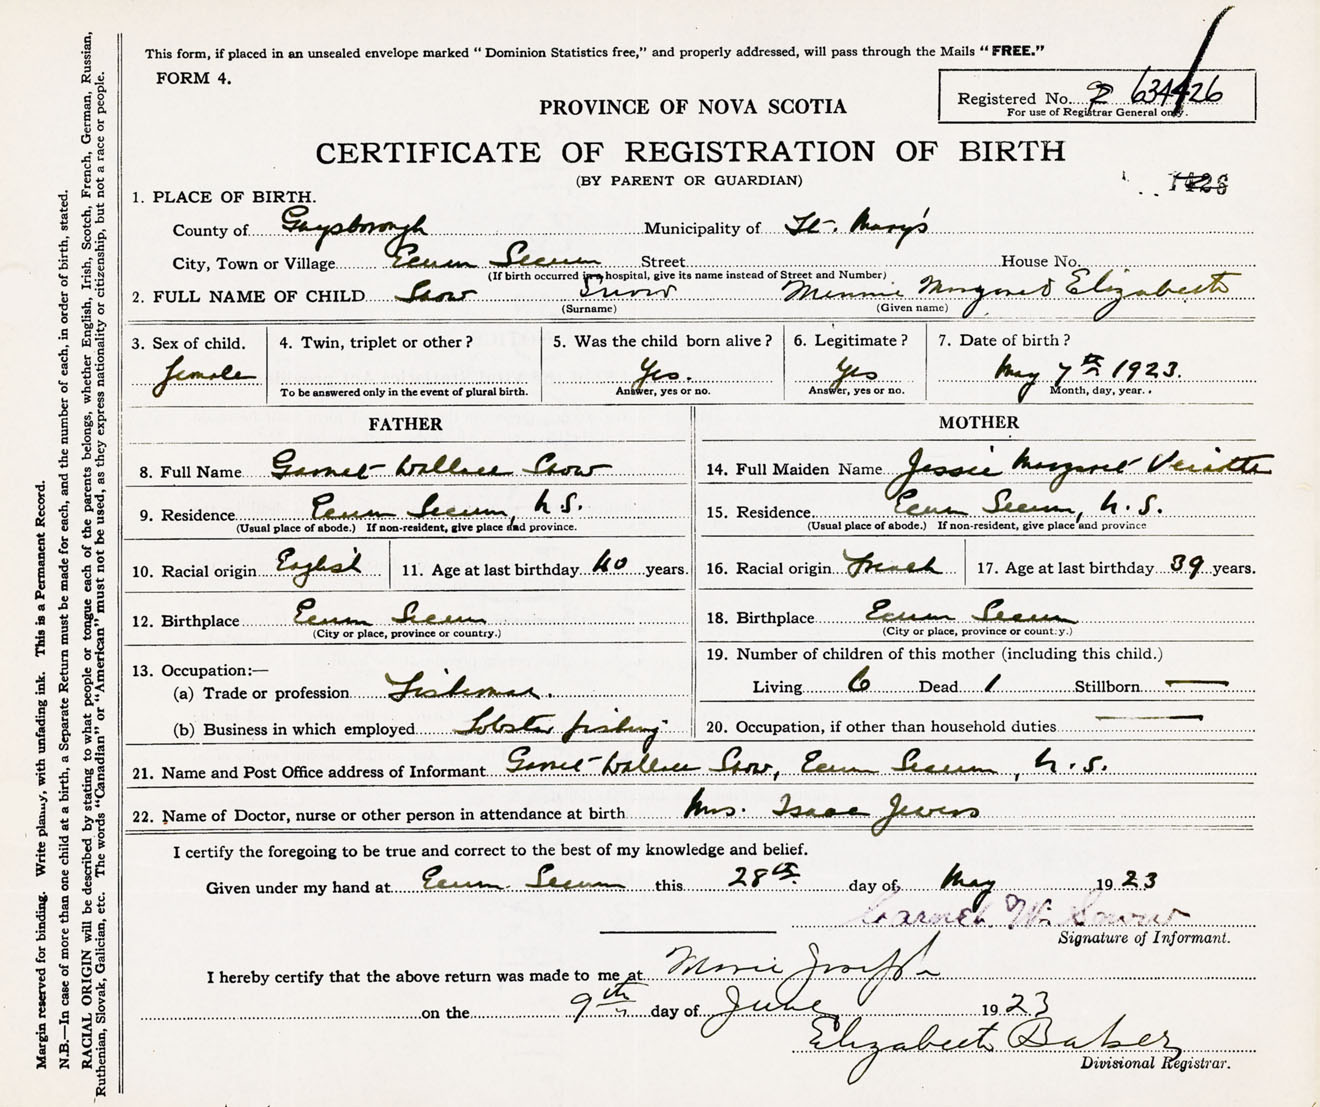 This form, if placed in an unsealed envelope marked “ Dominion Statistics free,” and properly addressed, will pass through the Mails “ FREE.”
FORM 4.
Registered No. 2 634426
For use of Registrar General only.
PROVINCE OF NOVA SCOTIA
CERTIFICATE OF REGISTRATION OF BIRTH
(BY PARENT OR GUARDIAN)
1. PLACE OF BIRTH.
County of Guysborough Municipality of St. Mary's
City, Town or Village Ecum Secum Street House No.
(If birth occurred in a hospital, give its name instead of Street and Number)
2. FULL NAME OF CHILD Snow Snow Minnie Margaret Elizabeth
(Surname) (Given name)
3. Sex of child. 4. Twin, triplet or other ? 5. Was the child born alive ? 6. Legitimate ? 7. Date of birth ?
female Yes. Yes May 7th 1923.
To be answered only in the event of plural birth. Answer, yes or no. Answer, yes or no. Month, day, year. .
FATHER
8. Full Name Garnet Wallace Snow
9. Residence Ecum Secum, N.S.
(Usual place of abode.) If non-resident, give place and province.
10. Racial origin English 11. Age at last birthday 40 years.
12. Birthplace Ecum Secum
(City or place, province or country.)
13. Occupation:—
(a) Trade or profession Fisherman.
(b) Business in which employed Lobster fishing
MOTHER
14. Full Maiden Name Jessie Margaret
15. Residence Ecum Secum, N.S.
(Usual place of abode.) If non-resident, give place and province
16. Racial origin French 17. Age at last birthday 39 years.
18. Birthplace Ecum Secum
(City or place, province or country.)
19. Number of children of this mother (including this child.)
Living 6 Dead 1 Stillborn —
20. Occupation, if other than household duties —
21. Name and Post Office address of Informant Garnet Wallace Snow, Ecum Secum, N.S.
22. Name of Doctor, nurse or other person in attendance at birth Mrs. Isaac Jewers
I certify the foregoing to be true and correct to the best of my knowledge and belief.
Given under my hand at Ecum Secum this 28th. day of May 1923
Garnet W. Snow
Signature of Informant.
I hereby certify that the above return was made to me at Marie Joseph
on the 9th day of June 1923
Elizabeth Baker
Divisional Registrar.
Margin reserved for binding. Write plainly, with unfading ink. This is a Permanent Record.
N.B.—In case of more than one child at a birth, a Separate Return must be made for each, and the number of each, in order of birth, stated.
RACIAL ORIGIN will be described by stating to what people or tongue each of the parents belongs, whether English, Irish, Scotch, French, German, Russian,
Ruthenian, Slovak, Galician, etc. The words “Canadian” or “American” must not be used, as they express nationality or citizenship, but not a race or people.